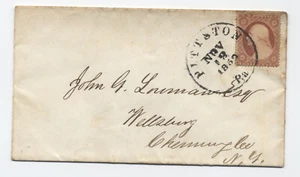 PITTSTON
NOV
18
Pa.
John G. Lowman Esq
Wellsburg
Chemung Co
N. Y.